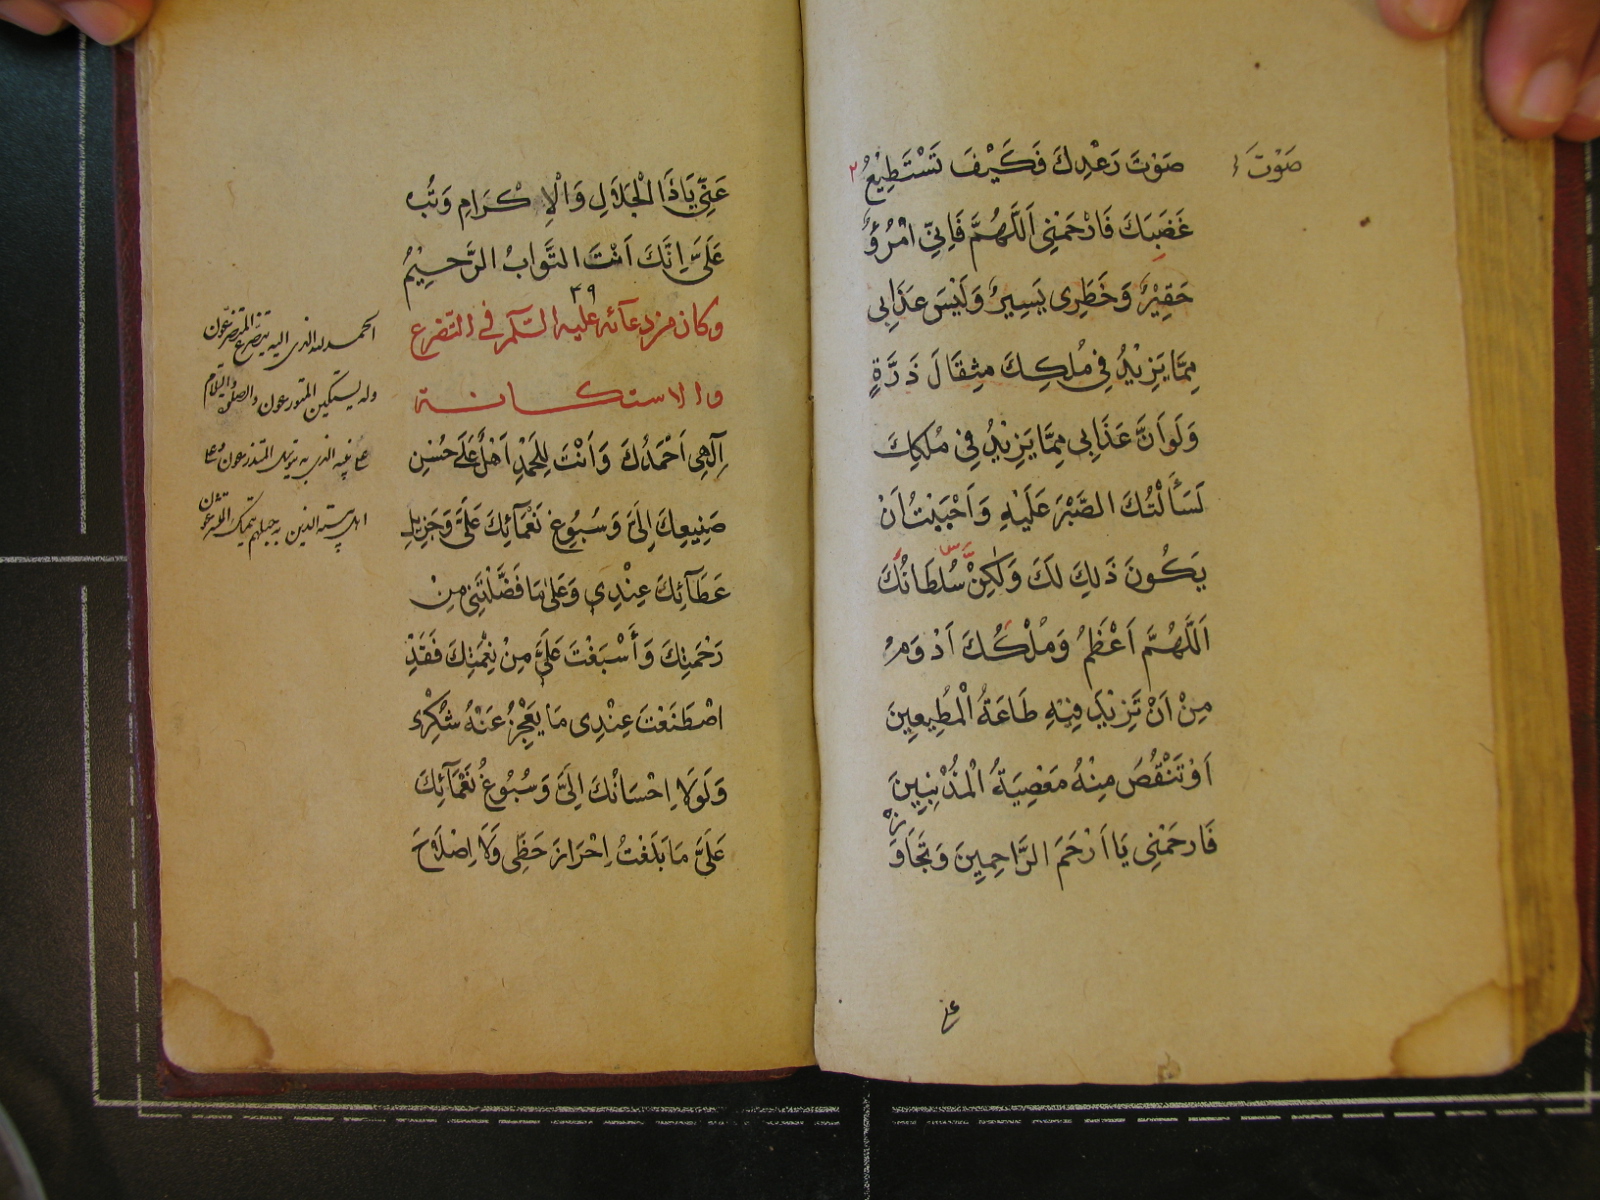 صَوْتَ رَعْدِكَ فَكَيْفَ تَسْتَطِيْعُ ٢
صَوْتَ
غَضَبَكَ فَارْحَمْنِى اَللّٰهُمَّ فَاِنِّى امْرُؤٌ
حَقِيْرٌ وَخَطَرِى يَسِيرٌ وَلَيْسَ عَذَابِى
مِمَّا يَزِيْدُ فِى مُلْكِكَ مِثْقَالَ ذَرَّةٍ
وَلَوْ اَنَّ عَذَابِى مِمَّا يَزِيْدُ فِى مُلْكِكَ
لَسَأَلْتُكَ الصَّبْرَ عَلَيْهِ وَاَحْبَبْتُ اَنْ
يَكُونَ ذَلِكَ لَكَ وَلٰكِنْ سُلْطَانُكَ
اَللّٰهُمَّ اَعْظَمُ وَمُلْكُكَ اَدْوَمُ
مِنْ اَنْ تَزِيْدَ فِيْهِ طَاعَةُ الْمُطِيعِينَ
اَوْ تَنْقُصَ مِنْهُ مَعْصِيَةُ الْمُذْنِبِينَ
فَارْحَمْنِى يَا اَرْحَمَ الرَّاحِمِينَ وَتَجَاوَزْ
عَنِّى يَا ذَا الْجَلَالِ وَالْاِكْرَامِ وَتُبْ
عَلَىَّ اِنَّكَ اَنْتَ التَّوَّابُ الرَّحِيْمُ
٤٩
وكان من دعآئه عليه السّلام فى التّضرع
والاستكانة
اِلٰهِى اَحْمَدُكَ وَاَنْتَ لِلْحَمْدِ اَهْلٌ عَلَى حُسْنِ
صَنِيعِكَ اِلَىَّ وَسُبُوغِ نَعْمَآئِكَ عَلَىَّ وَجَزِيلِ
عَطَآئِكَ عِنْدِى وَعَلىٰ مَا فَضَّلْتَنِى مِنْ
رَحْمَتِكَ وَأَسْبَغْتَ عَلَىَّ مِنْ نِعْمَتِكَ فَقَدِ
اصْطَنَعْتَ عِنْدِى مَا يَعْجِزُ عَنْهُ شُكْرِى
وَلَوْلَا اِحْسَانُكَ اِلَىَّ وَسُبُوغُ نَعْمَآئِكَ
عَلَىَّ مَا بَلَغْتُ اِحْرَازَ حَظِّى وَلَا اِصْلَاحَ
الحمد لله الذى اليه يتضرّع المتضرّعون
وله يستكين المتورعون والصلوة والسّلام